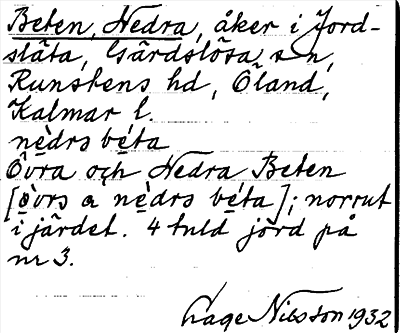 Beten, Nedra, åker i Jord-
släta, Gärdslösa sn,
Runstens hd, Öland,
Kalmar l.
nèdrs béta
Övra och Nedra Beten
[òvrs a nèdrs béta]; norrut
i järdet. 4 tuld jord på
nr 3.
Nilsson 1932